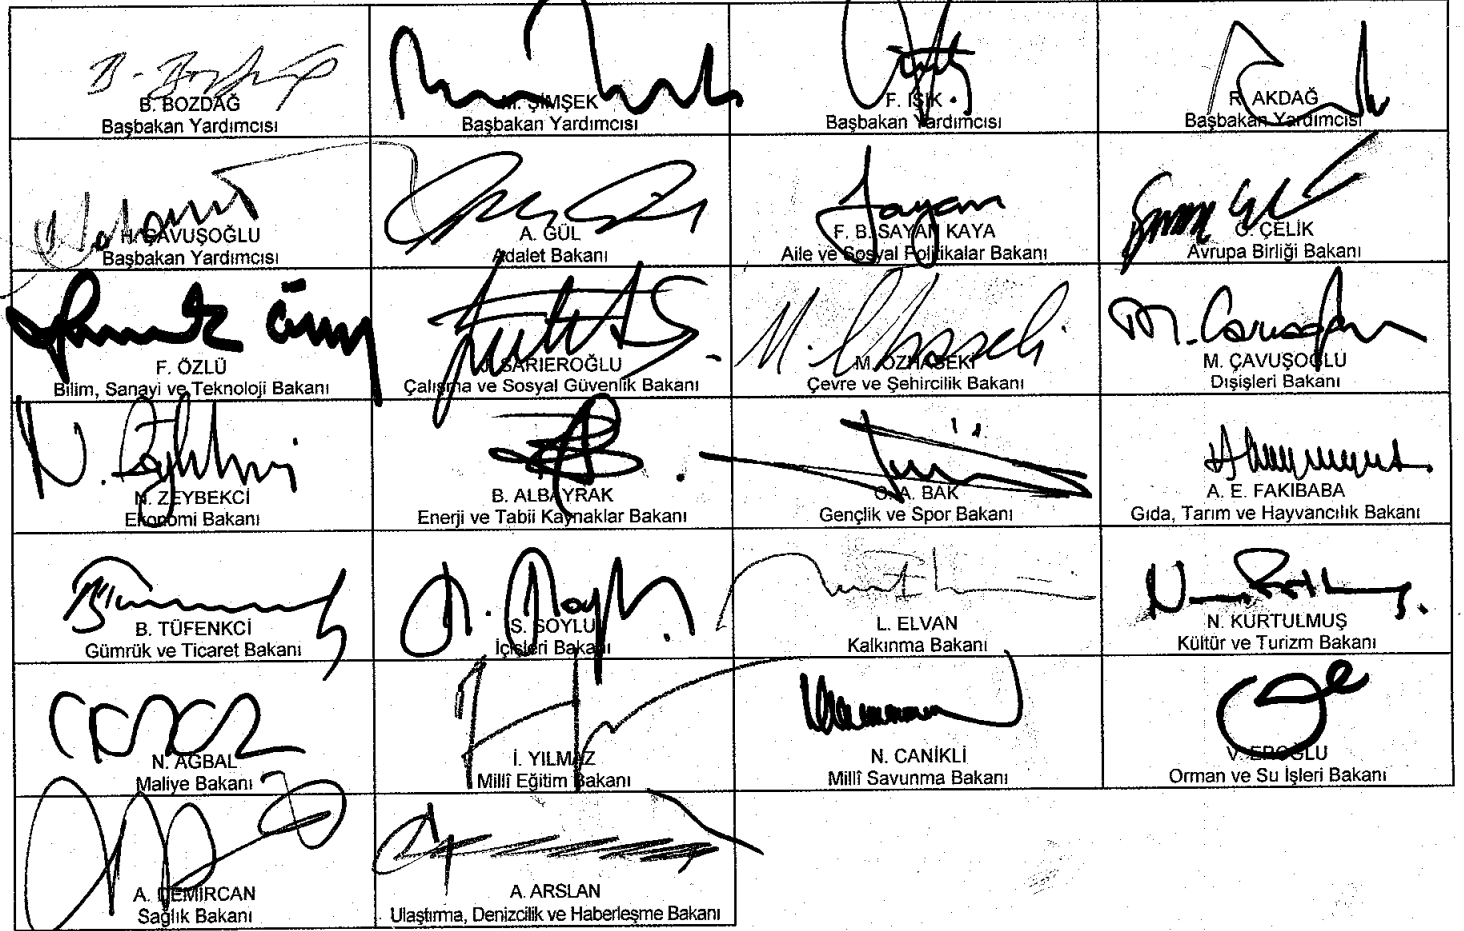 B. BOZDAĞ
Başbakan Yardımcısı
M. ŞİMŞEK
Başbakan Yardımcısı
F. IŞIK
Başbakan Yardımcısı
R. AKDAĞ
Başbakan Yardımcısı
H. ÇAVUŞOĞLU
Başbakan Yardımcısı
A. GÜL
Adalet Bakanı
F. B. SAYAN KAYA
Aile ve Sosyal Politikalar Bakanı
Ö. ÇELİK
Avrupa Birliği Bakanı
F. ÖZLÜ
Bilim, Sanayi ve Teknoloji Bakanı
J. SARIEROĞLU
Çalışma ve Sosyal Güvenlik Bakanı
M. ÖZHASEKİ
Çevre ve Şehircilik Bakanı
M. ÇAVUŞOĞLU
Dışişleri Bakanı
N. ZEYBEKCİ
Ekonomi Bakanı
B. ALBAYRAK
Enerji ve Tabii Kaynaklar Bakanı
O. A. BAK
Gençlik ve Spor Bakanı
A. E. FAKIBABA
Gıda, Tarım ve Hayvancılık Bakanı
B. TÜFENKCİ
Gümrük ve Ticaret Bakanı
S. SOYLU
İçişleri Bakanı
L. ELVAN
Kalkınma Bakanı
N. KURTULMUŞ
Kültür ve Turizm Bakanı
N. AĞBAL
Maliye Bakanı
İ. YILMAZ
Millî Eğitim Bakanı
N. CANİKLİ
Millî Savunma Bakanı
V. EROĞLU
Orman ve Su İşleri Bakanı
A. DEMİRCAN
Sağlık Bakanı
A. ARSLAN
Ulaştırma, Denizcilik ve Haberleşme Bakanı